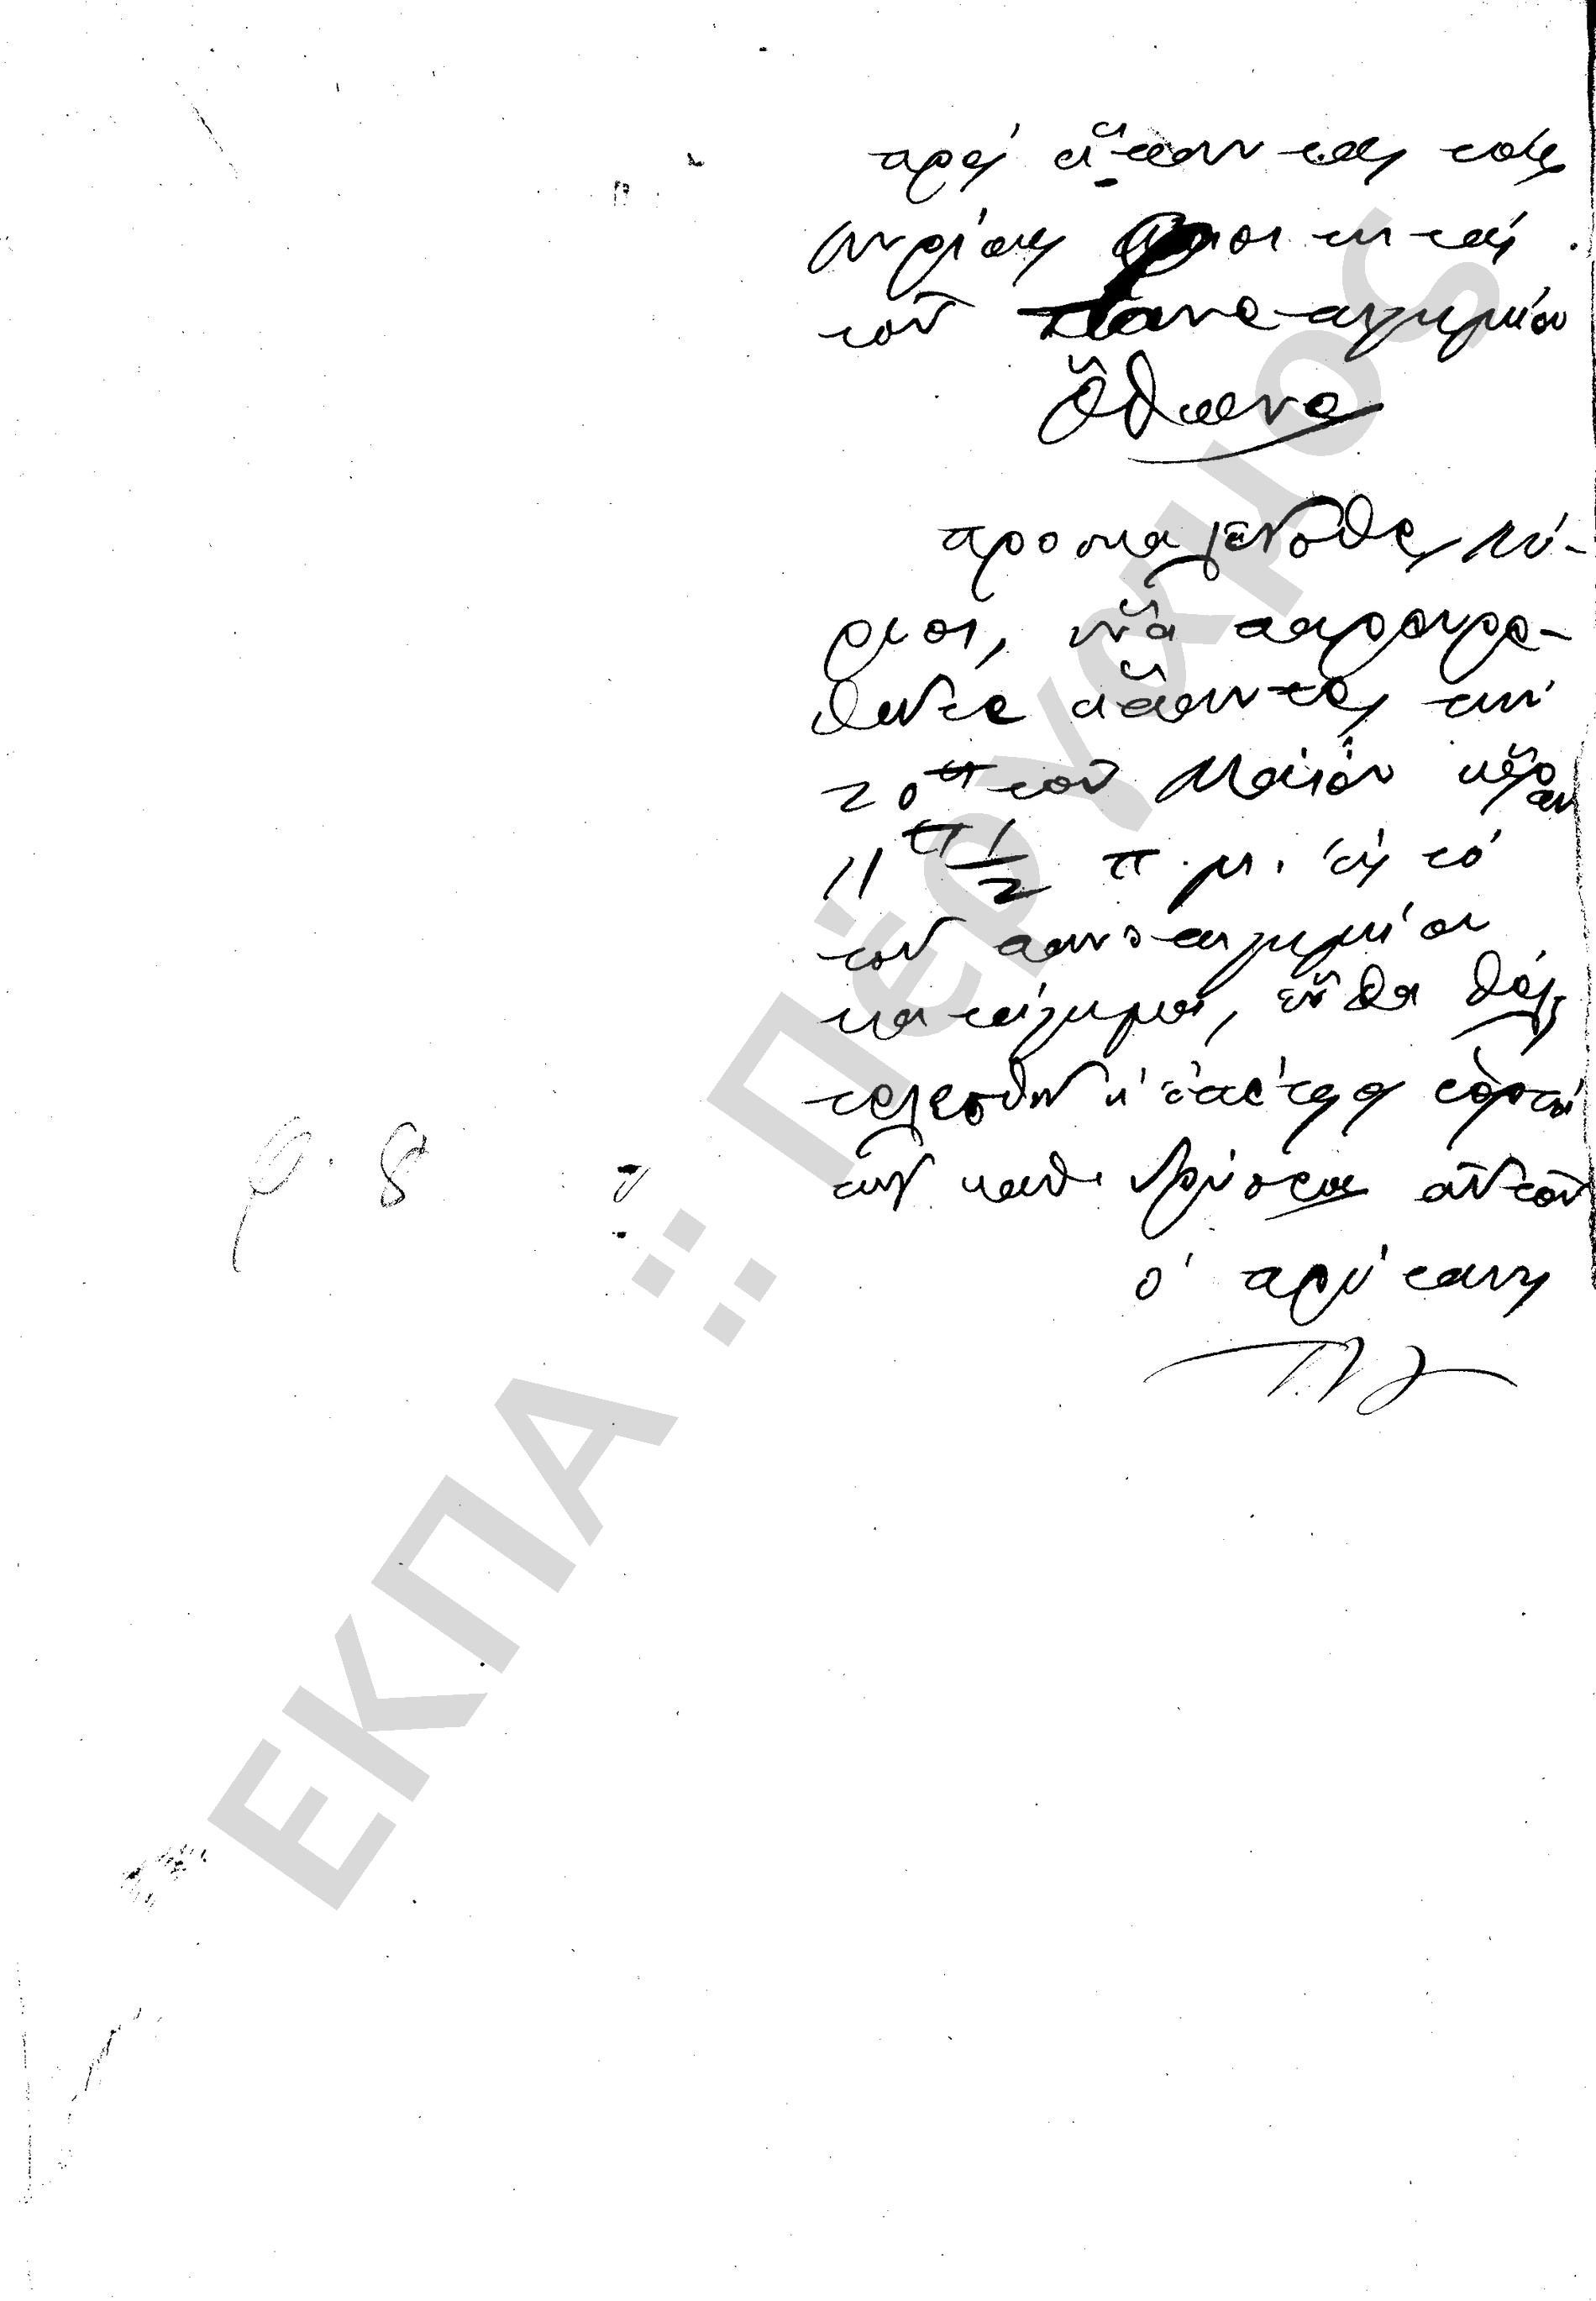 πρὸς ἅπαντας τοὺς
κυρίους φοιτητάς
τοῦ Πανεπιστημίου
Ὄθωνος
προσκαλεῖσθε, κύ-
ριοι, νὰ παρευρε-
θῆτε ἅπαντες τὴν
20ην τοῦ Μαΐου ὥραν
11ην 1/2 π. μ. εἰς τὸ
τοῦ πανεπιστημίου
κατάστημα, ἔνθα θέλει
τελεσθῆ ἡ ἐπέτειος ἑορτὴ
τῆς καθιδρύσεως αὐτοῦ
ὁ πρύτανις
φ. 8
ΕΚΠΑ :: Πέργαμος